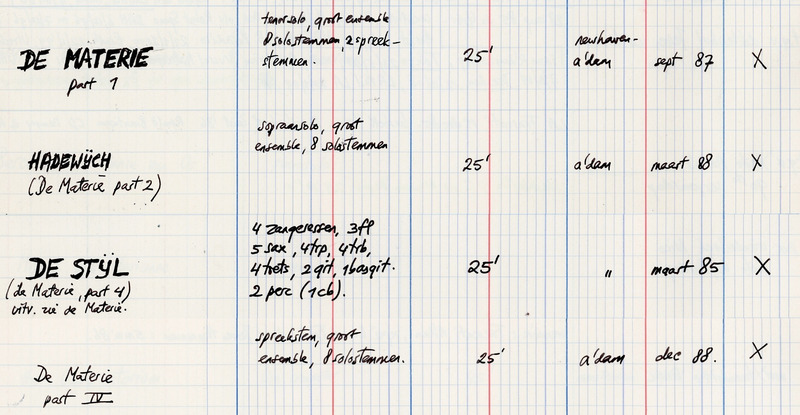 tenorsolo, groot ensemble
8 solostemmen, 2 spreek-
stemmen.
DE MATERIE
part 1
25'
newhaven-
a'dam
sept 87
X
sopraansolo, groot
ensemble, 8 solostemmen
HADEWŸCH
(De Materie part 2)
25'
a'dam
maart 88
X
4 zangeressen, 3fl
5 sax, 4trp, 4trb,
4 toets, 2 git, 1basgit.
2 perc (1cb).
DE STŸL
(de Materie, part 4)
uitv. zie de Materie.
25'
"
maart 85
X
spreekstem, groot
ensemble, 8 solostemmen.
De Materie
part IV
25'
a'dam
dec 88.
X